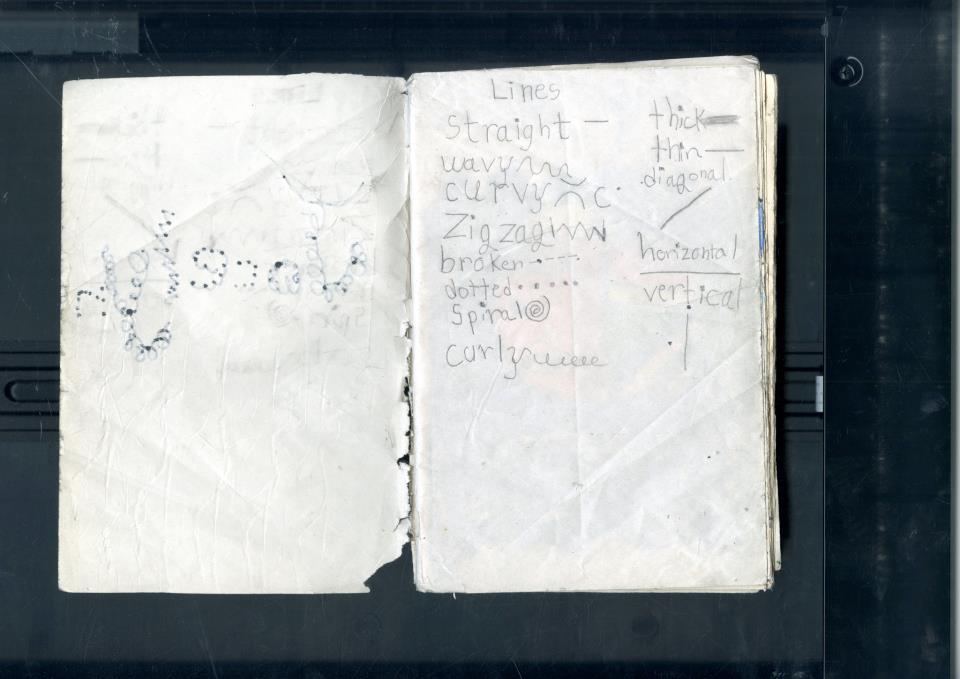 Lines
Straight
wavy
curvy
Zigzag
broken
dotted
Spiral
curly
thick
thin
diagonal
horizontal
vertical